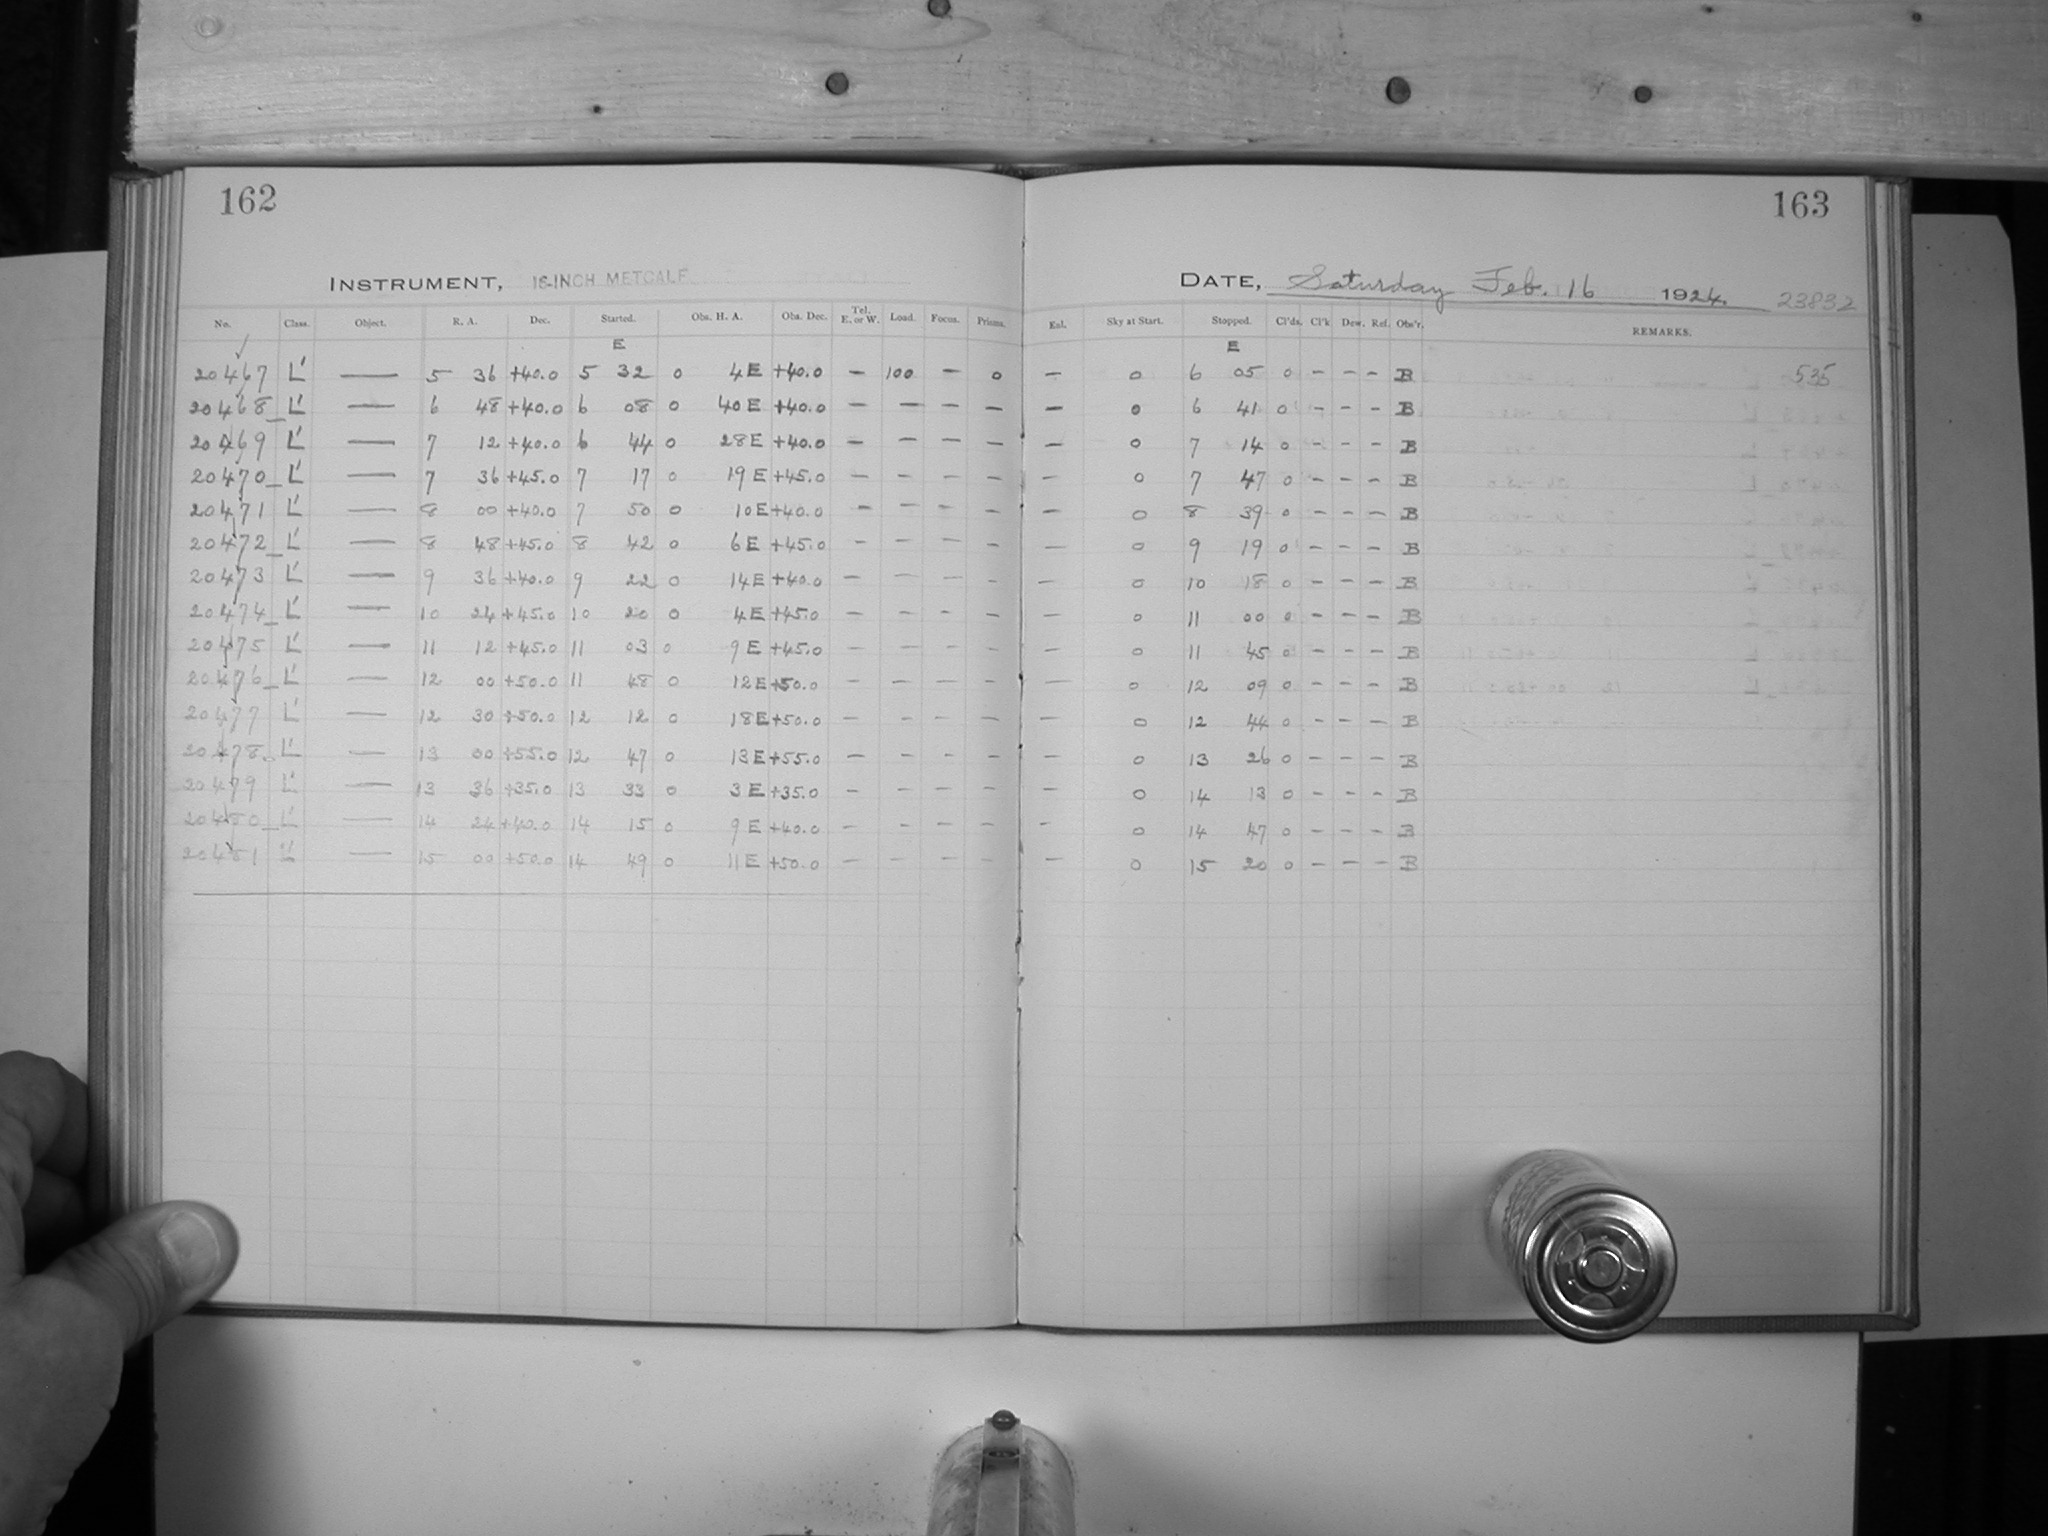 162
INSTRUMENT, 16-INCH METCALF
No. Class. Object. R. A. Dec. Started. Obs. H. A. Obs. Dec. Tel. E. or W. Load. Focus. Prisms.
E
20467 L' — 5 36 +40.0 5 32 0 4 E +40.0 — 100 — 0
20468 L' — 6 48 +40.0 6 08 0 40 E +40.0 — — — —
20469 L' — 7 12 +40.0 6 44 0 28 E +40.0 — — — —
20470 L' — 7 36 +45.0 7 17 0 19 E +45.0 — — — —
20471 L' — 8 00 +40.0 7 50 0 10 E +40.0 — — — —
20472 L' — 8 48 +45.0 8 42 0 6 E +45.0 — — — —
20473 L' — 9 36 +40.0 9 22 0 14 E +40.0 — — — —
20474 L' — 10 24 +45.0 10 20 0 4 E +45.0 — — — —
20475 L' — 11 12 +45.0 11 03 0 9 E +45.0 — — — —
20476 L' — 12 00 +50.0 11 48 0 12 E +50.0 — — — —
20477 L' — 12 30 +50.0 12 12 0 18 E +50.0 — — — —
20478 L' — 13 00 +55.0 12 47 0 13 E +55.0 — — — —
20479 L' — 13 36 +35.0 13 33 0 3 E +35.0 — — — —
20480 L' — 14 24 +40.0 14 15 0 9 E +40.0 — — — —
20481 L' — 15 00 +50.0 14 49 0 11 E +50.0 — — — —
163
DATE, Saturday Feb. 16 1924. 23832
Enl. Sky at Start. Stopped. Cl'ds. Cl'k Dew. Ref. Obs'r. REMARKS.
E
— 0 6 05 0 - - - B 535
— 0 6 41 0 - - - B
— 0 7 14 0 - - - B
— 0 7 47 0 - - - B
— 0 8 39 0 - - - B
— 0 9 19 0 - - - B
— 0 10 18 0 - - - B
— 0 11 00 0 - - - B
— 0 11 45 0 - - - B
— 0 12 09 0 - - - B
— 0 12 44 0 - - - B
— 0 13 26 0 - - - B
— 0 14 13 0 - - - B
— 0 14 47 0 - - - B
— 0 15 20 0 - - - B